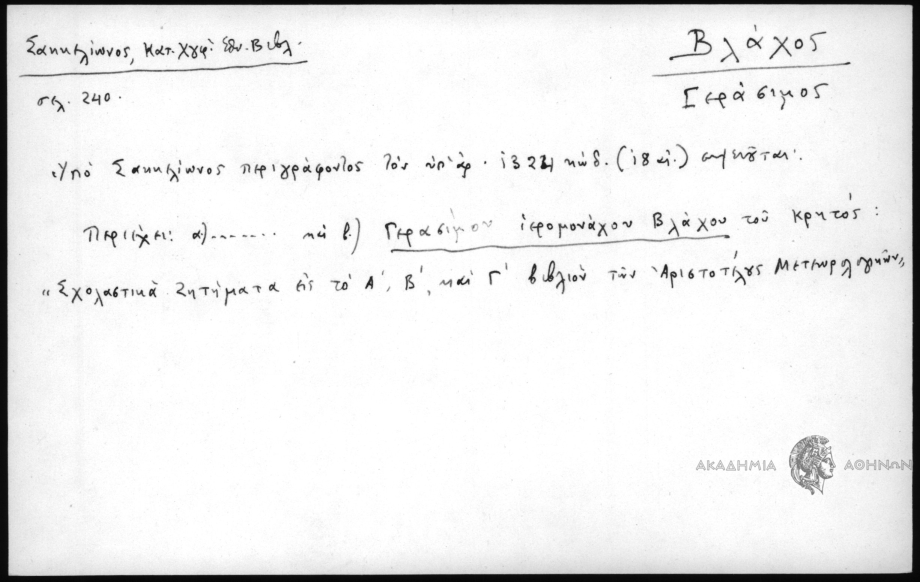 Σακκελίωνος, Κατ. Χγφ. Εθν. Βιβλ.
Βλάχος
σελ. 240.
Γεράσιμος
Ὑπό Σακκελίωνος περιγράφοντος τόν ὑπ' ἀρ. 1324 κώδ. (18 αἰ.) σημειοῦται:
Περιέχει: α)........ καὶ β.) Γερασίμου ἱερομονάχου Βλάχου τοῦ Κρητός:
"Σχολαστικά Ζητήματα εἰς τό Α', Β', καί Γ' βιβλίον τῶν Ἀριστοτέλους Μετεωρολογικῶν"
ΑΚΑΔΗΜΙΑ ΑΘΗΝΩΝ